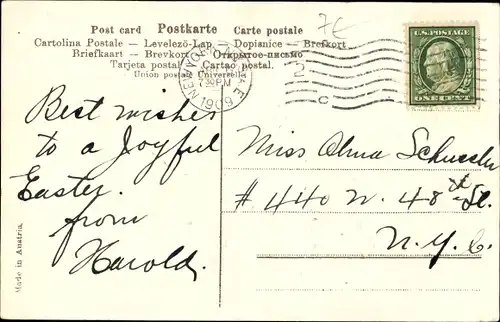 7€
Post card Postkarte Carte postale
Cartolina Postale — Levelező-Lap. — Dopisnice — Brefkort
Briefkaart — Brevkort — Открытое письмо
Tarjeta postal — Cartao postal.
Union postale Universelle
NEW YORK
730PM
1909
2
C
U.S. POSTAGE
ONE CENT
Best wishes
to a Joyful
Easter.
from
Harold.
Miss Alma Schussler
# 440 W. 48 St.
N.Y.C.
Made in Austria.